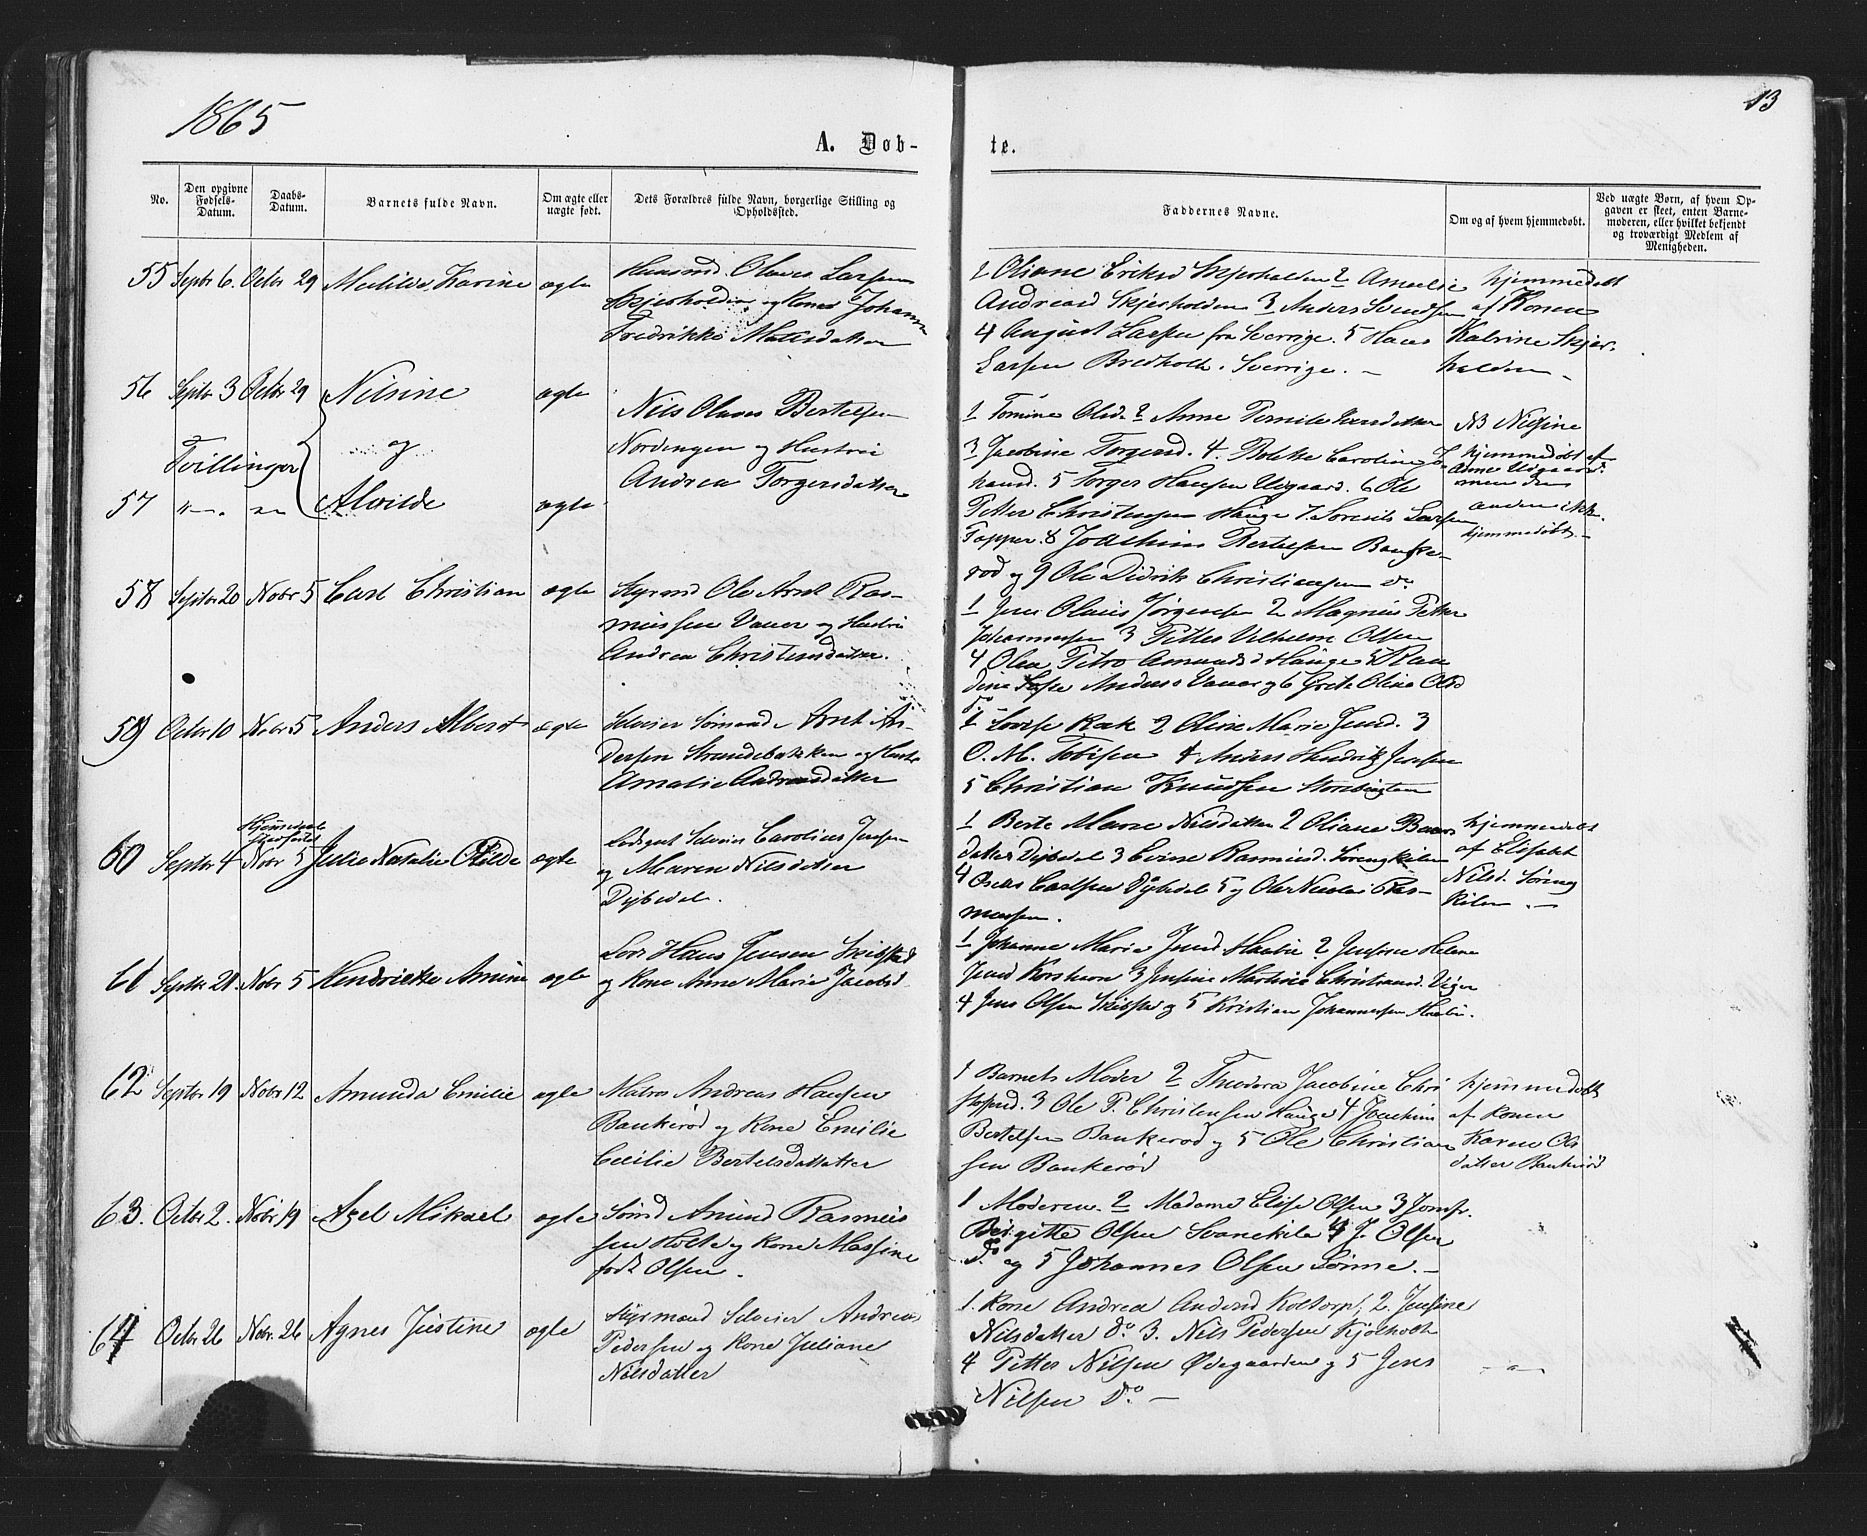 1865
13
A. Døb-
te.
No.
Den opgivne
Fødsels-
Datum.
Daabs-
Datum.
Barnets fulde Navn.
Om ægte eller
uægte født.
Dets Forældres fulde Navn, borgerlige Stilling og
Opholdssted.
Faddernes Navne.
Om og af hvem hjemmedøbt.
Ved uægte Børn, af hvem Op-
gaven er skeet, enten Barne-
moderen, eller hvilket bekjendt
og troværdigt Medlem af
Menigheden.
55 Septbr 6. Octbr 29 Matilde Karine ægte
Huusmd Olaves Larsen
Skjersholden og Kone Johanne
Fredrikke Matisdatter
1 Oliane Eriksd Skjersholden 2 Amalie
Andreasd Skjersholden 3 Anders Svendsen
4 August Larsen fra Sverrige. 5 Hans
Larsen Bredholt. Sverrige. –
hjemmedøbt
af Konen
Katrine Skjer-
holden –
56 Septbr 3 Octbr 29 Nilsine ægte
Tvillinger
og
57 Alvilde ægte
Nils Olaves Bertelsen
Nordengen og Hustrue
Andrea Torgersdatter
1 Tomine Olsd. 2 Anne Pernille
3 Jacobine Torgersd. 4. Bolette Caroline Jo-
hansd. 5 Torger Hansen Uegaard. 6 Ole
Petter Christensen Hauge 7. Larsen
Topper. 8 Joachim Bertelsen Banke-
rød og 9 Ole Didrik Christiansen do
NB Nilsine
hjemmedøbt af
Anne Uegaard.
men den
anden ikke
hjemmedøbt. –
58 Septbr 20 Nobr 5 Carl Christian ægte
Styrmd Ole Arnt Ras-
mussen Vauer og Hustrue
Andrea Christensdatter.
1 Jens Olaus Jørgensen 2 Magnus Petter
Johannesen 3 Petter Vilhelm Olsen
4 Olea Petro Amundsd Hauge 5 Ran
dine Anders Vauer og 6 Grete Oline Olsd
do
59 Octbr 10 Nobr 5 Anders Albert ægte
Selveier Sømand Arnt An-
dersen Strandebakken og Hustr
Amalie Andreasdatter
1 Lovise Rak 2 Oline Marie Jensd. 3
O. M. Tobisen 4 Anders Hendrik Jensen
5 Christian Knudsen
60 Septbr 4 Nobr 5 Julie Natalie Otilde ægte
Selveier Carolius Jensen
og Maren Nilsdatter
Dybedal.
1 Berte Marie Nilsdatter 2 Oliane
datter Dybedal 3 Evine Rasmusd. Sørengkilen
4 Oscar Carlsen Dybedal 5 og Ole Nicolai Ras-
mussen.
hjemmedøbt
af Elisabt
Nilsd. Søreng
kilen. –
61 Septbr 21. Nobr 5 Hendriette Amine ægte
Lods Hans Jensen Skibstad
og Kone Anne Marie Jacobsd
1 Johanne Marie Jensd 2 Josephine Helene
Jensd Korshavn 3 Jensine Martine Christiansd. Viger
4 Jens Olsen Skibstad og 5 Kristian Johannesen
62 Septbr 19 Nobr 12 Amanda Emilie ægte
Matros Andreas Hansen
Bankerød og Kone Emilie
Cecilie Bertelsdatter
1 Barnets Moder 2 Theodora Jacobine Chri
stophersd. 3 Ole P. Christensen Hauge 4 Joachim
Bertelsen Bankerød og 5 Ole Christian
sen Bankerød
hjemmedøbt
af Konen
Karen Ols
datter Bankerød
63. Octbr 2. Nobr 19 Axel Mikael ægte
Sømd Amund Rasmus
sen Holte og Kone Massine
født Olsen.
1 Moderen. 2 Madame Elise Olsen 3 Jomfr.
Birgitte Olsen Svanekile 4 J. Olsen
do og 5 Johannes Olsen Sønne. –
64 Octbr 26 Nobr. 26 Agnes Justine ægte
Styrmand Selveier Andreas
Pedersen og Kone Juliane
Nilsdatter
1. Kone Andrea Andersd Koltorp, 2. Jensine
Nilsdatter do. 3. Nils Pedersen Kjølholt
4 Petter Nilsen Ødegaarden og 5 Jens
Nilsen do. –